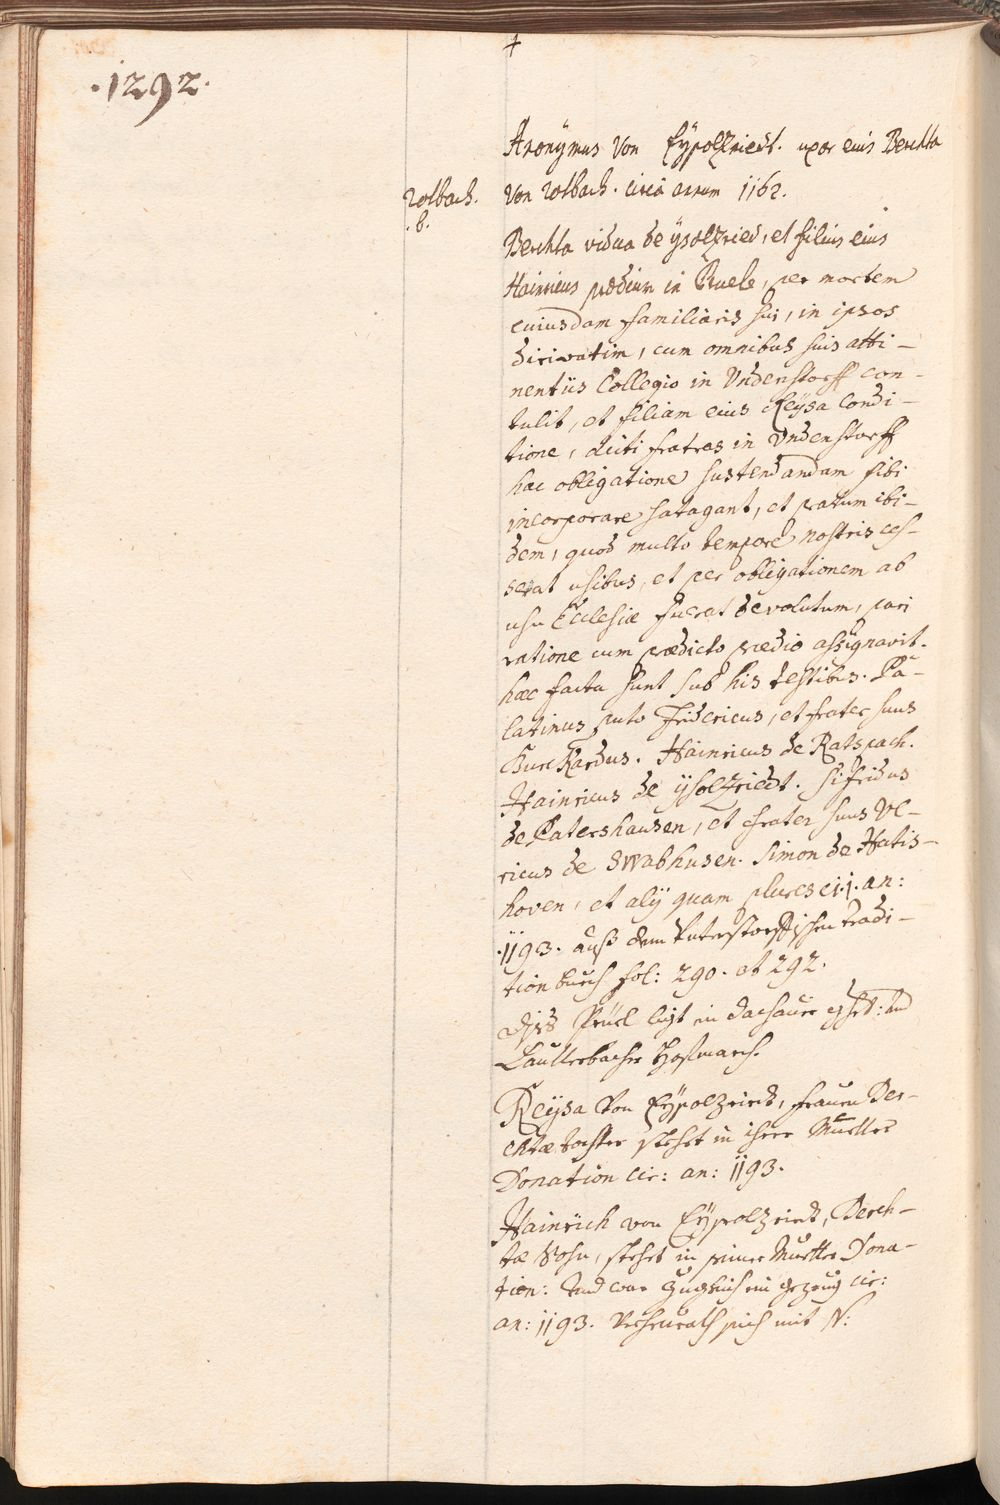 .1292.
+
Anonÿmus von Eÿsolzriedt. uxor eius Berchta
Rolbach. von Rolbach. circa annum 1162.
.b.
Berchta vidua de ÿsolzried, et filius eius
Hainricus prædium in Bruele, per mortem
cuiusdam familiaris sui, in ipsos
dirivatim, cum omnibus suis atti-
nentiis Collegio in Undenstorff con-
tulit, et filiam eius Reÿsa Condi-
tione, dicti fratres in Undenstorff
hac obligatione sustendandam sibi
incorporare satagant, et pratum ibi-
dem, quod multo tempore nostris ces-
serat usibus, et per obligationem ab
usu Ecclesiæ fuerat devolutum, pari
ratione cum prædicto prædio assignavit.
hæc facta sunt sub his testibus. Pa-
latinus puto Fridericus, et frater suus
Hainricus de Ratspach.
Hainricus de ÿsolzriedt. Sifridus
de Patershausen, et frater suus Ul-
ricus de Swabhusen. Simon de Hatis-
hoven, et alÿ quam plures an:
.1193. auß dem tradi-
tion buech fol: 290. et 292.
ligt in Dachauer und
Lautterbacher Hofmarch.
Reÿsa von Eÿsolzriedt, frauen Ber-
chtæ tochter stehet in ihrer Muetter
Donation cir: an: 1193.
Hainrich von Eÿsolzriedt, Berch-
tæ Sohn, stehet in seiner Muetter Dona-
tion: und war zugleich ein gezeug cir:
an: 1193. Verheurath sich mit N: